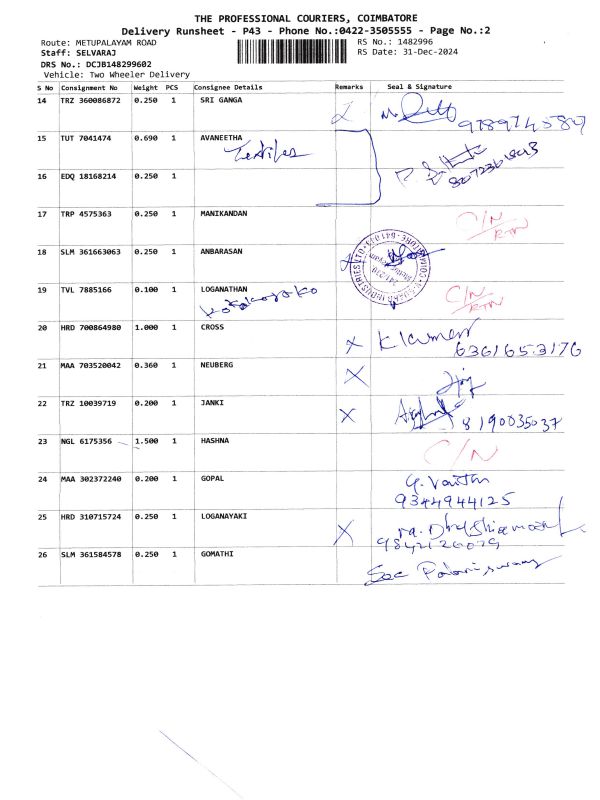 THE PROFESSIONAL COURIERS, COIMBATORE
Delivery Runsheet - P43 - Phone No.:0422-3505555 - Page No.:2
Route: METUPALAYAM ROAD RS No.: 1482996
Staff: SELVARAJ RS Date: 31-Dec-2024
DRS No.: DCJB148299602
Vehicle: Two Wheeler Delivery
S No Consignment No Weight PCS Consignee Details Remarks Seal & Signature
14 TRZ 360086872 0.250 1 SRI GANGA
15 TUT 7041474 0.690 1 AVANEETHA
Textiles
16 EDQ 18168214 0.250 1
17 TRP 4575363 0.250 1 MANIKANDAN C/N
RTN
18 SLM 361663063 0.250 1 ANBARASAN
19 TVL 7885166 0.100 1 LOGANATHAN C/N
RTN
20 HRD 700864980 1.000 1 CROSS X
6361653176
21 MAA 703520042 0.360 1 NEUBERG X
22 TRZ 10039719 0.200 1 JANKI X 8190035037
23 NGL 6175356 1.500 1 HASHNA C/N
24 MAA 302372240 0.200 1 GOPAL
9344944125
25 HRD 310715724 0.250 1 LOGANAYAKI X
9842126079
26 SLM 361584578 0.250 1 GOMATHI